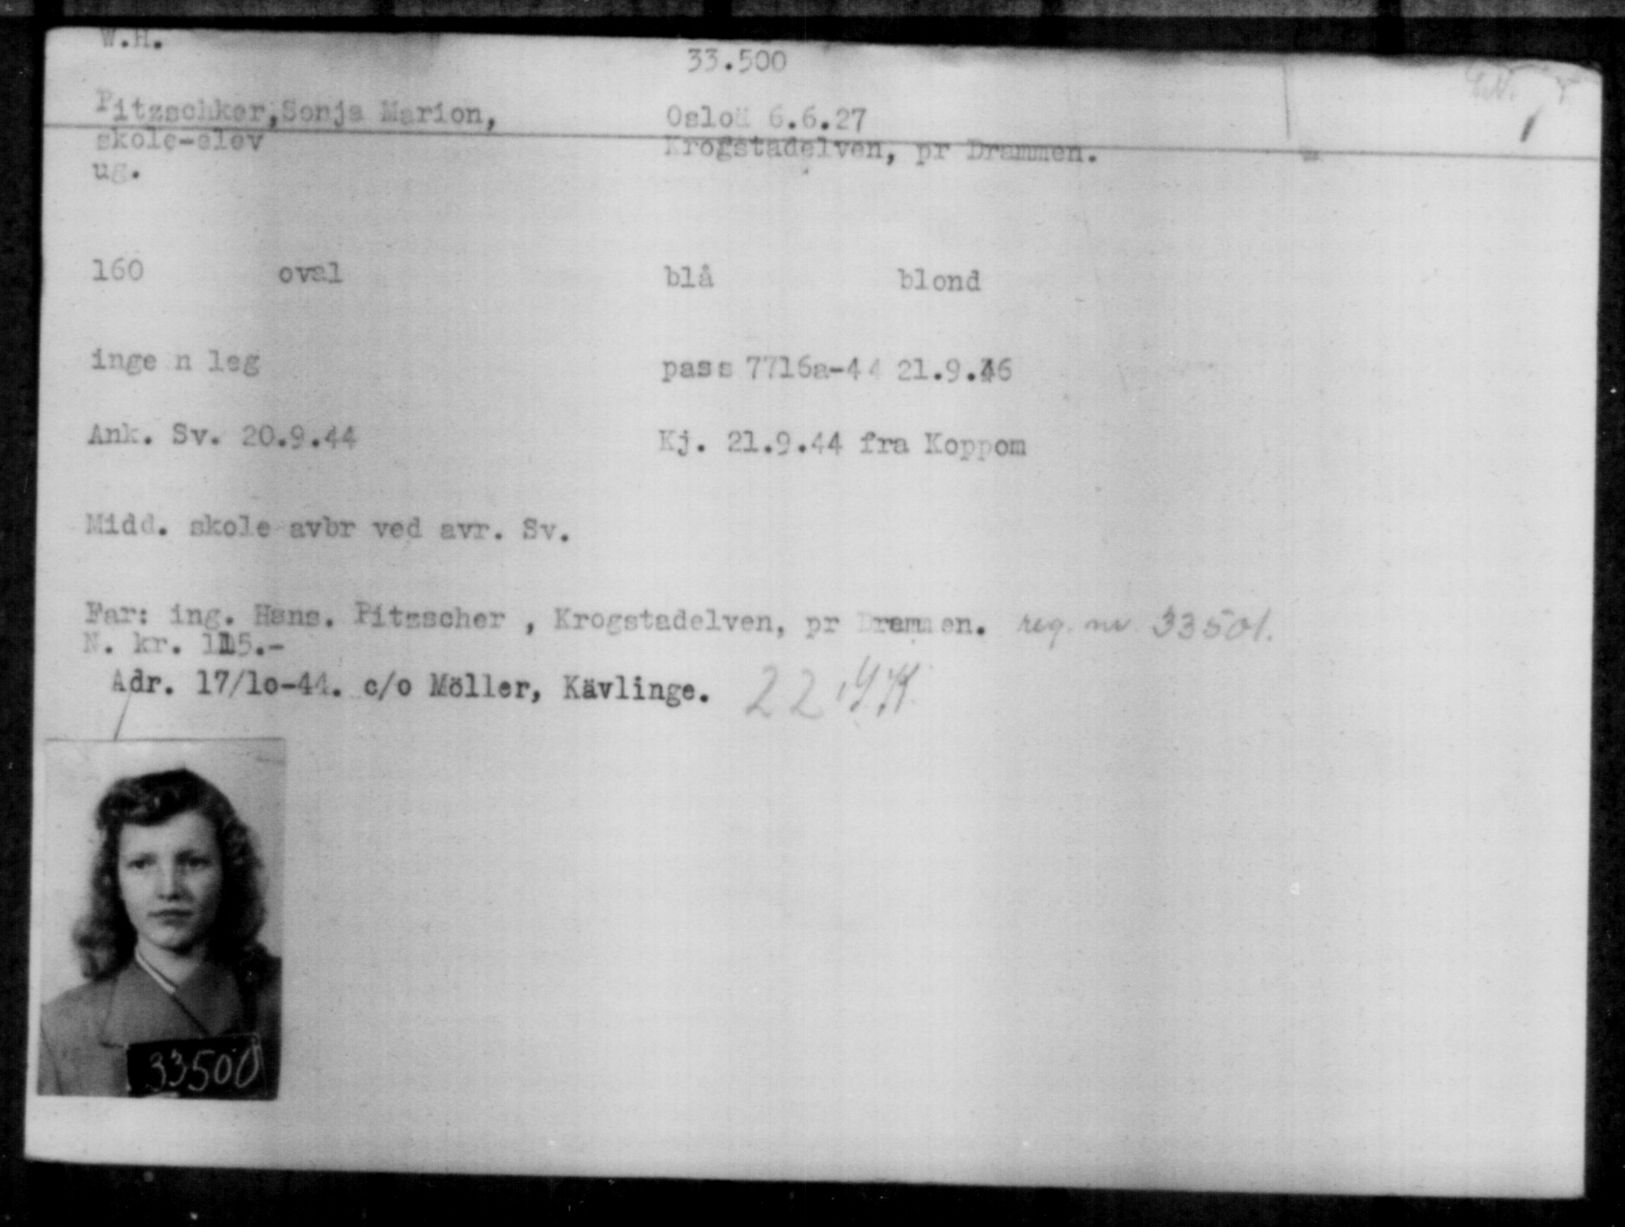 W.H.
33.500
Pitzschker,Sonja Marion, Oslo 6.6.27
skole-elev Krogstadelven, pr Drammen.
ug.
160 oval blå blond
inge n leg pass 7716a-44 21.9.46
Ank. Sv. 20.9.44 Kj. 21.9.44 fra Koppom
Midd. skole avbr ved avr. Sv.
Far: ing. Hans. Pitzscher , Krogstadelven, pr Drammen. reg. nr. 33501.
N. kr. 115.-
Adr. 17/lo-44. c/o Möller, Kävlinge. 22
33500